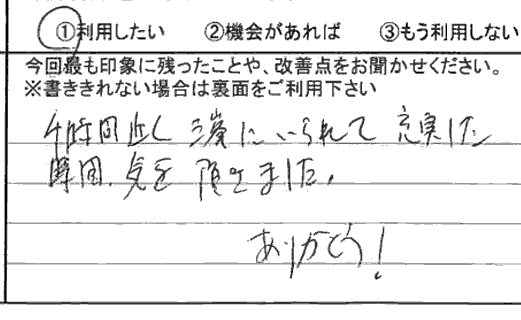 ①利用したい ②機会があれば ③もう利用しない
今回最も印象に残ったことや、改善点をお聞かせください。
※書ききれない場合は裏面をご利用下さい
4時間近く三嶺にいられて充実した
時間、気を頂きました。
ありがとう!